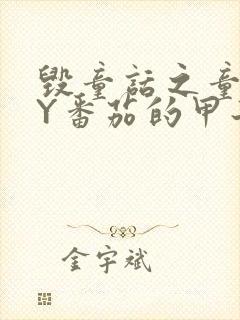 毁童话之童
Y番茄的甲
金宇斌